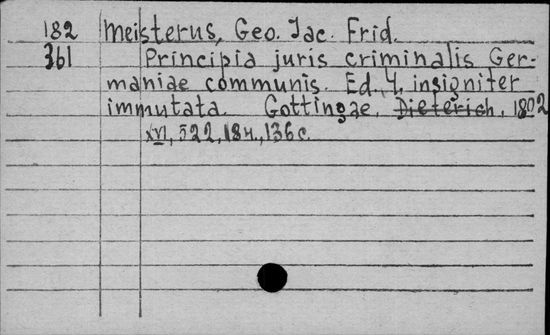 182 Meisterus, Geo. Jac. Frid.
361 Principia juris criminalis Ger-
maniae communis. Ed. 4, insigniter
immutata. Gottingae, Dieterich, 1802
XVI, 522, 18 н., 136 c.